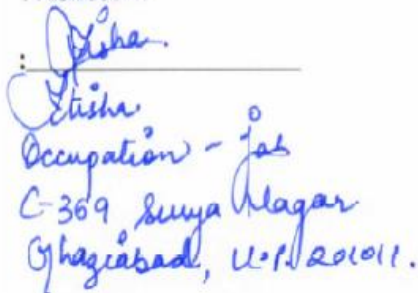 :
Itisha
Occupation - job
C-369 Surya Nagar
Ghaziabad, U.P. 201011.